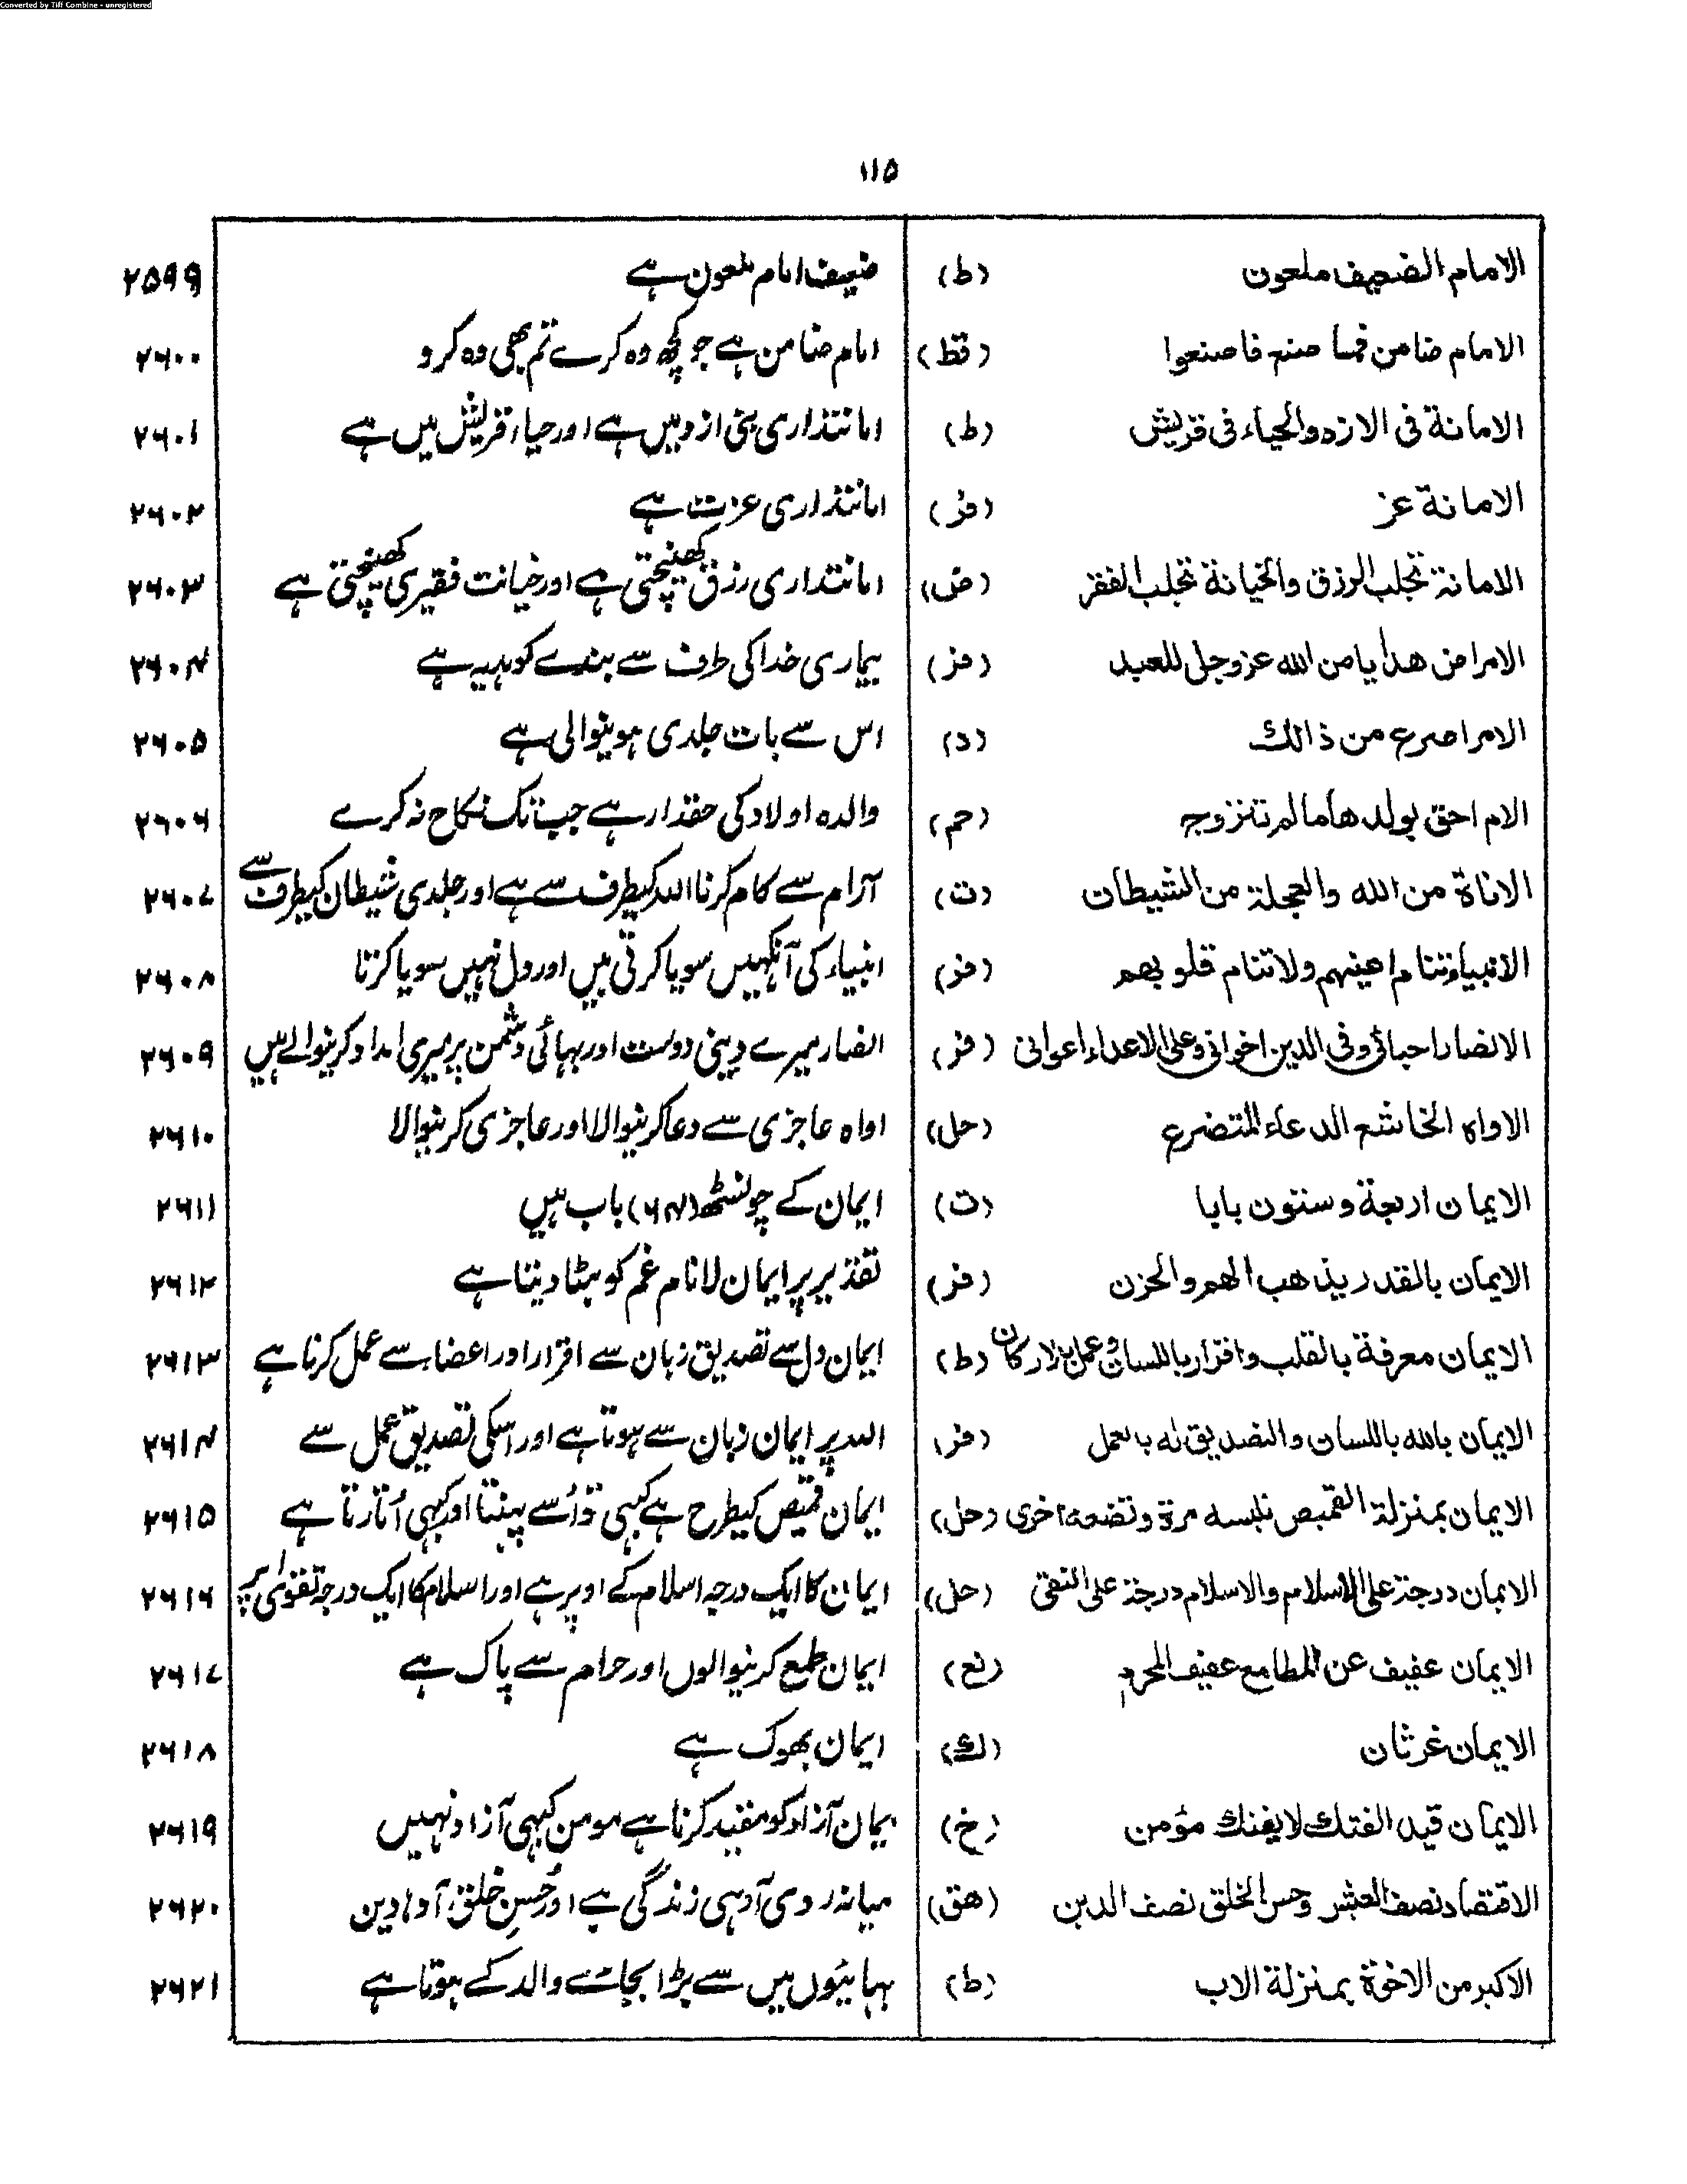 Converted by Tiff Combine - unregistered
۱۱۵
الامام الضعیف ملعون (ط) ضعیف امام ملعون ہے ۲۵۹۹
الامام ضامن فما صنع فاصنعوا (قط) امام ضامن ہے جو کچھ وہ کرے تم بھی وہ کرو ۲۶۰۰
الامانة فی الازد والحیاء فی قریش (ط) امانتداری بنی ازد میں ہے اور حیاء قریش میں ہے ۲۶۰۱
الامانة عز (فز) امانتداری عزت ہے ۲۶۰۲
الامانة تجلب الرزق والخیانة تجلب الفقر (ض) امانتداری رزق کھینچتی ہے اور خیانت فقیری کھینچتی ہے ۲۶۰۳
الامراض ھدایا من الله عزوجل للعبد (فز) بیماری خدا کی طرف سے بندے کو ہدیہ ہے ۲۶۰۴
الامر اسرع من ذالك (د) اس سے بات جلدی ہونیوالی ہے ۲۶۰۵
الام احق بولدھا مالم تتزوج (حم) والدہ اولاد کی حقدار ہے جب تک نکاح نہ کرے ۲۶۰۶
الاناة من الله والعجلة من الشیطان (ت) آرام سے کام کرنا اللہ کیطرف سے ہے اور جلدی شیطان کیطرف سے ۲۶۰۷
الانبیاء تنام اعینهم ولا تنام قلوبهم (فز) انبیاء کی آنکہیں سویا کرتی ہیں اور دل نہیں سویا کرتا ۲۶۰۸
الانصار احبائی وفی الدین اخوانی وعلی الاعداء اعوانی (فز) انصار میرے دینی دوست اور بہائی دشمن پر میری امداد کرنیوالے ہیں ۲۶۰۹
الاواه الخاشع الدعاء المتضرع (حل) اواہ عاجزی سے دعا کرنیوالا اور عاجزی کرنیوالا ۲۶۱۰
الایمان اربعة وستون بابا (ت) ایمان کے چونسٹھ (۶۴) باب ہیں ۲۶۱۱
الایمان بالقدر یذهب الهم والحزن (فز) تقدیر پر ایمان لانا ہم غم کو ہٹا دیتا ہے ۲۶۱۲
الایمان معرفة بالقلب واقرار باللسان وعمل بالارکان (ط) ایمان دل سے تصدیق زبان سے اقرار اور اعضاء سے عمل کرنا ہے ۲۶۱۳
الایمان بالله باللسان والتصدیق له بالعمل (فز) اللہ پر ایمان زبان سے ہوتا ہے اور اسکی تصدیق عمل سے ۲۶۱۴
الایمان بمنزلة القمیص تلبسه مرة وتضعه اخری (حل) ایمان قمیص کیطرح ہے کبہی تو اُسے پہنتا اور کبہی اُتارتا ہے ۲۶۱۵
الایمان درجة علی الاسلام والاسلام درجة علی التقی (حل) ایمان کا ایک درجہ اسلام کے اوپر ہے اور اسلام کا ایک درجہ تقوای پر ۲۶۱۶
الایمان عفیف عن المطامع عفیف المحرم (نع) ایمان طمع کرنیوالوں اور حرام سے پاک ہے ۲۶۱۷
الایمان غرثان (ك) ایمان بھوک ہے ۲۶۱۸
الایمان قید الفتك لا یفتك مؤمن (خ) یمان آزاد کو مقید کرنا ہے مومن کبہی آزاد نہیں ۲۶۱۹
الاقتصاد نصف العیش وحسن الخلق نصف الدین (هق) میانہ روی آدہی زندگی ہے اور حُسنِ خلق آدہا دین ۲۶۲۰
الاکبر من الاخوة بمنزلة الاب (ط) بہائیوں میں سے بڑا بجائے والد کے ہوتا ہے ۲۶۲۱